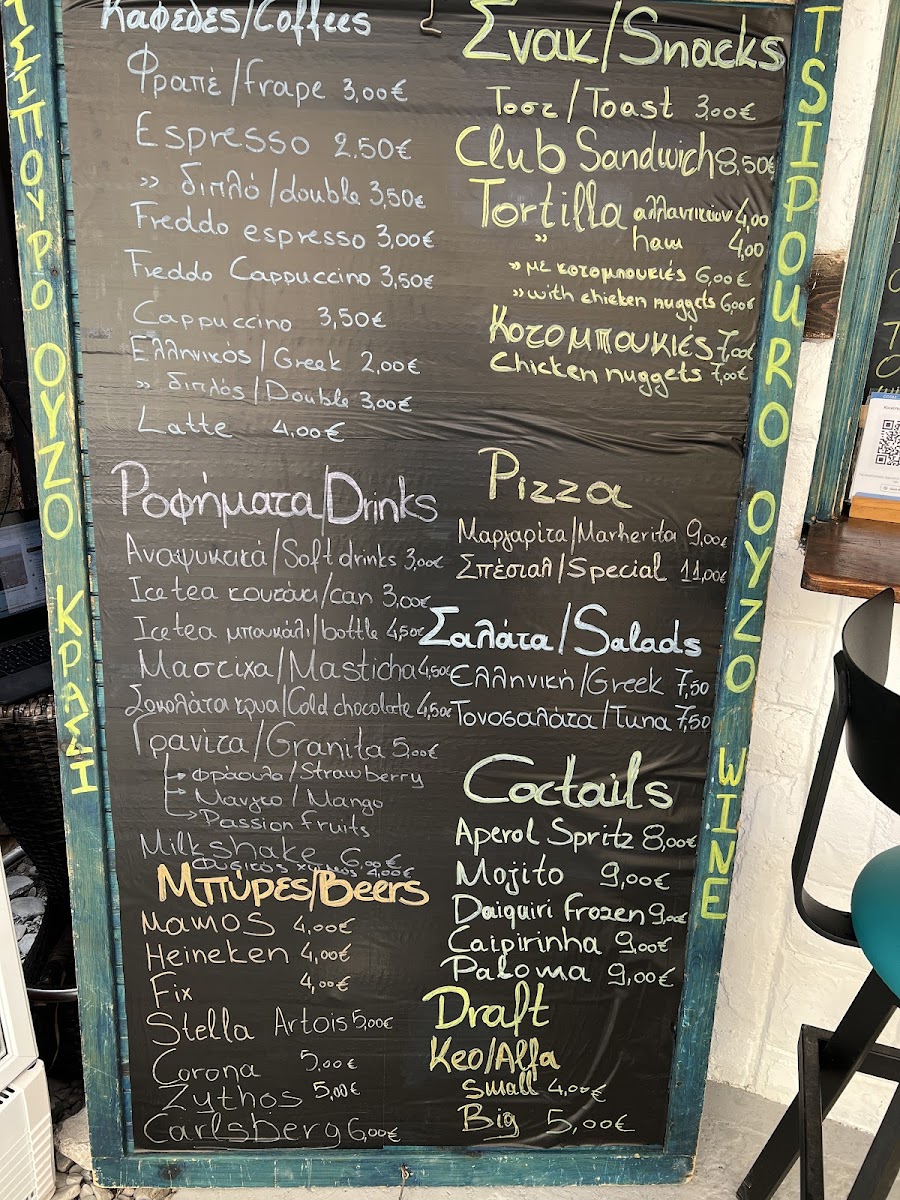 ΤΣΙΠΟΥΡΟ ΟΥΖΟ ΚΡΑΣΙ
Καφεδες/Coffees
Φραπέ/frape 3,00€
Espresso 2.50€
" διπλό/double 3,50€
Freddo espresso 3,00€
Freddo Cappuccino 3,50€
Cappuccino 3,50€
Ελληνικός/Greek 2,00€
" διπλός/Double 3,00€
Latte 4,00€
Ροφήματα/Drinks
Αναψυκτικά/Soft drinks 3,00€
Ice tea κουτάκι/can 3,00€
Ice tea μπουκάλι/bottle 4,50€
Μαστιχα/Masticha 4,50€
Σοκολάτα κρυα/Cold chocolate 4,50€
Γρανίτα/Granita 5,00€
φράουλα/Strawberry
Μανγκο/Mango
Passion fruits
Milkshake 6,00€
Φυσικός χυμός 4,00€
ΜΠΎΡΕΣ/Beers
Mamos 4,00€
Heineken 4,00€
Fix 4,00€
Stella Artois 5,00€
Corona 5,00€
Zythos 5,00€
Carlsberg 6,00€
Σνακ/Snacks
Τοστ/Toast 3,00€
Club Sandwich 8,50€
Tortilla αλλαντικών 4,00
" ham 4,00
" με κοτομπουκιές 6,00€
" with chicken nuggets 6,00€
Κοτομπουκιές 7,00€
Chicken nuggets 7,00€
Pizza
Μαργαρίτα/Marherita 9,00€
Σπέσιαλ/Special 11,00€
Σαλάτα/Salads
Ελληνική/Greek 7,50
Τονοσαλάτα/Tuna 7,50
Coctails
Aperol Spritz 8,00€
Mojito 9,00€
Daiquiri frozen 9,00€
Caipirinha 9,00€
Paloma 9,00€
Draft
Keo/Alfa
small 4,00€
Big 5,00€
TSIPOURO OYZO WINE